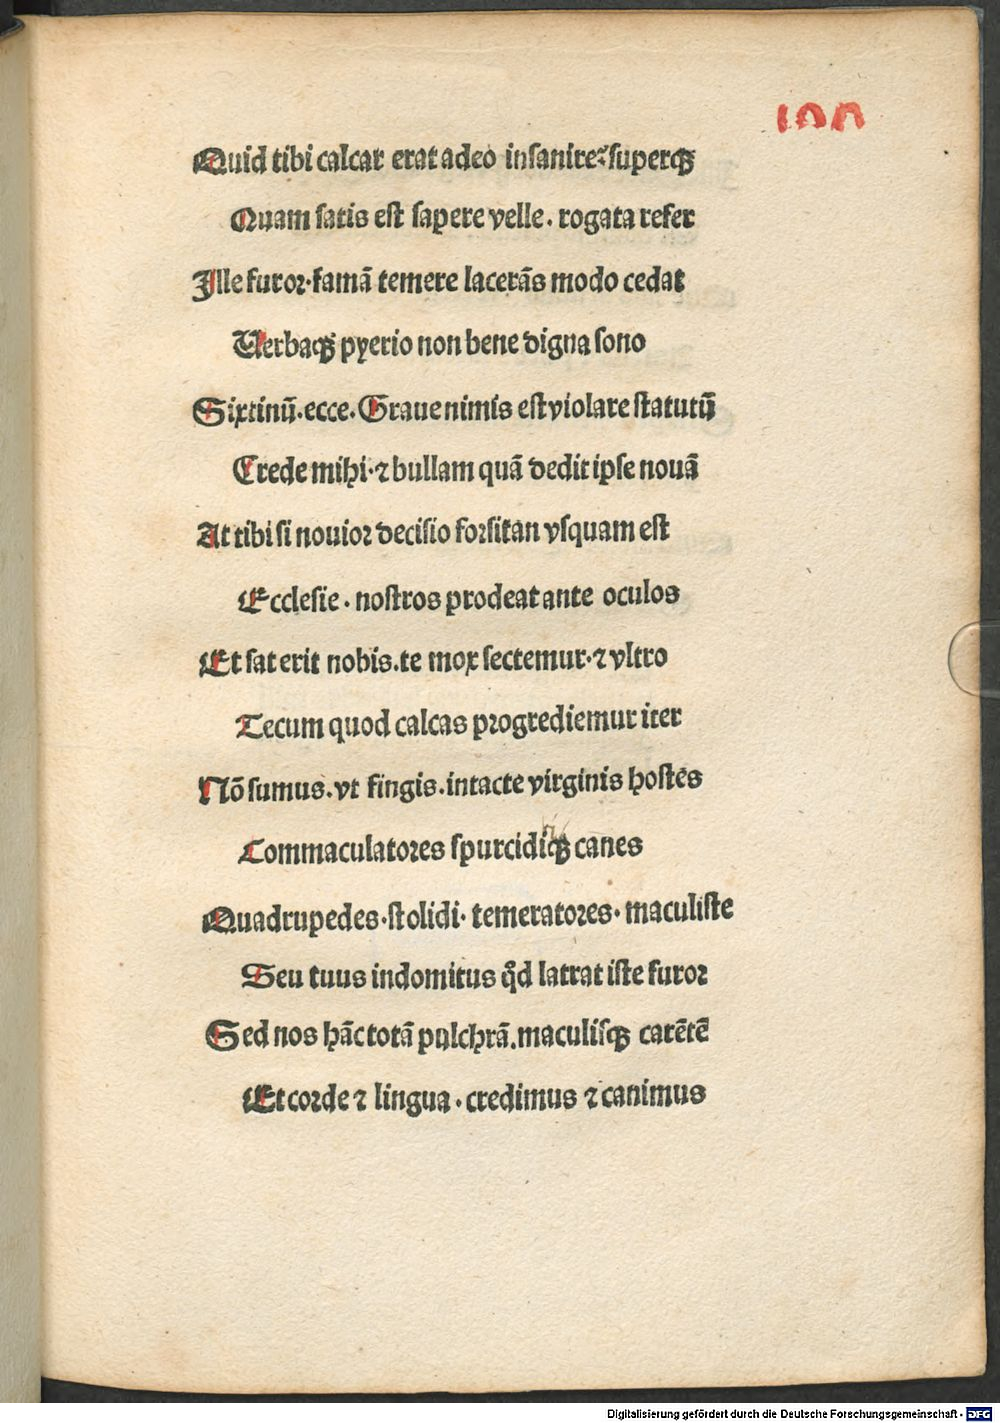 100
Quid tibi calcar erat adeo insanire? superqꝫ
Quam satis est sapere velle. rogata refer
Ille furor. famā temere lacerās modo cedat
Uerbaqꝫ pyerio non bene digna sono
Sixtinū. ecce. Graue nimis est violare statutū
Crede mihi. ⁊ bullam quā dedit ipse nouā
At tibi si nouior decisio forsitan vsquam est
Ecclesie. nostros prodeat ante oculos
Et sat erit nobis. te mox sectemur. ⁊ vltro
Tecum quod calcas progrediemur iter
Nō sumus. vt fingis. intacte virginis hostes
Commaculatores spurcidiqꝫ canes
Quadrupedes. stolidi. temeratores. maculiste
Seu tuus indomitus qd̛ latrat iste furor
Sed nos hāc totā pulchrā. maculisqꝫ carētē
Et corde ⁊ lingua. credimus ⁊ canimus
Digitalisierung gefördert durch die Deutsche Forschungsgemeinschaft - DFG